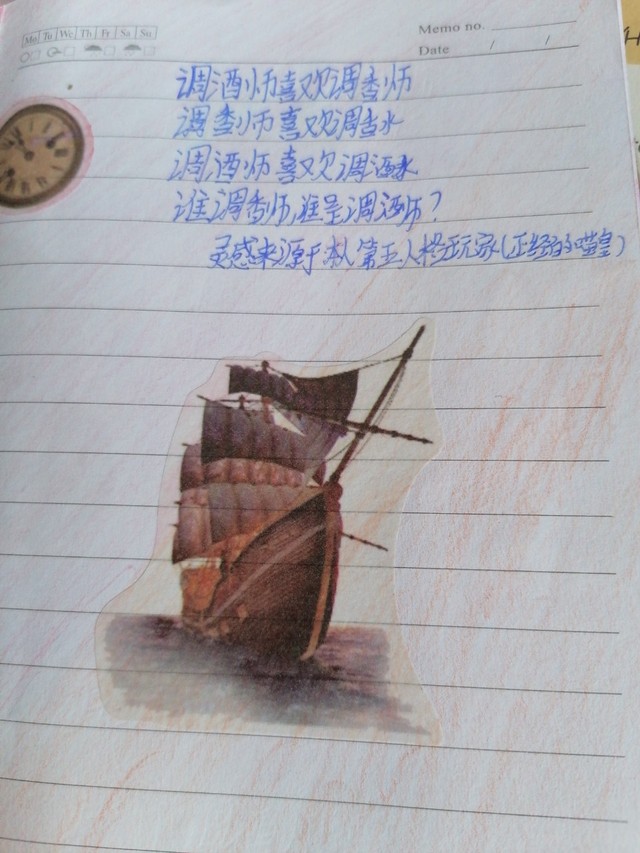 Mo Tu We Th Fr Sa Su
Memo no.
Date / /
调酒师喜欢调香师
调香师喜欢调香水
调酒师喜欢调酒水
谁调香师,谁是调酒师?
灵感来源于本人第五人格玩家(正经的喵皇)